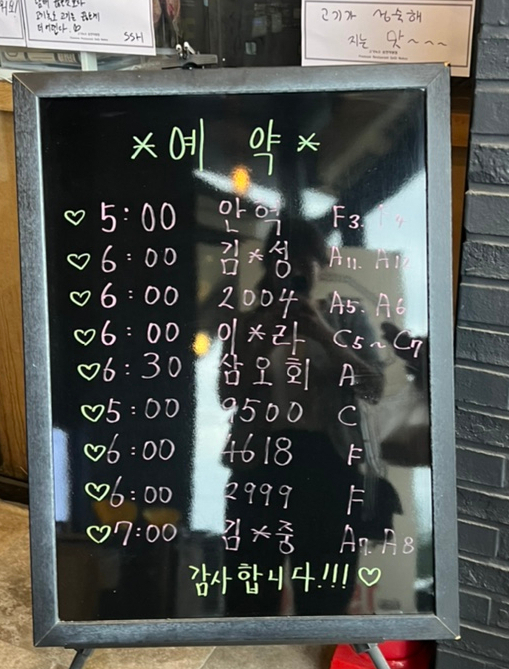 SSH
고기가 성숙해
지는 맛~~~
*예 약*
♡ 5:00 안
♡ 6:00 김*성 A11.
♡ 6:00 2004 A5. A6
♡ 6:00 이*라 C5~C7
♡ 6:30 삼오회 A
♡ 5:00 9500 C
♡ 6:00 4618 F
♡ 6:00 2999 F
♡ 7:00 김*중 A7. A8
감사합니다!!! ♡